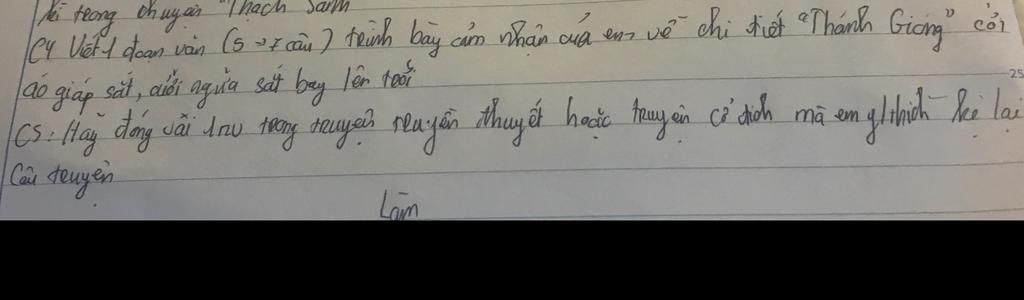 kì trong chuyện "Thạch Sanh
C4 Viết 1 đoạn văn (5 -> 7 câu) trình bày cảm nhận của em về chi tiết "Thánh Gióng" cởi
áo giáp sắt, cưỡi ngựa sắt bay lên trời
C5: Hãy đóng vai 1 nv trong truyện truyền thuyết hoặc truyện cổ tích mà em y/thích kể lại
Câu truyện
Làm